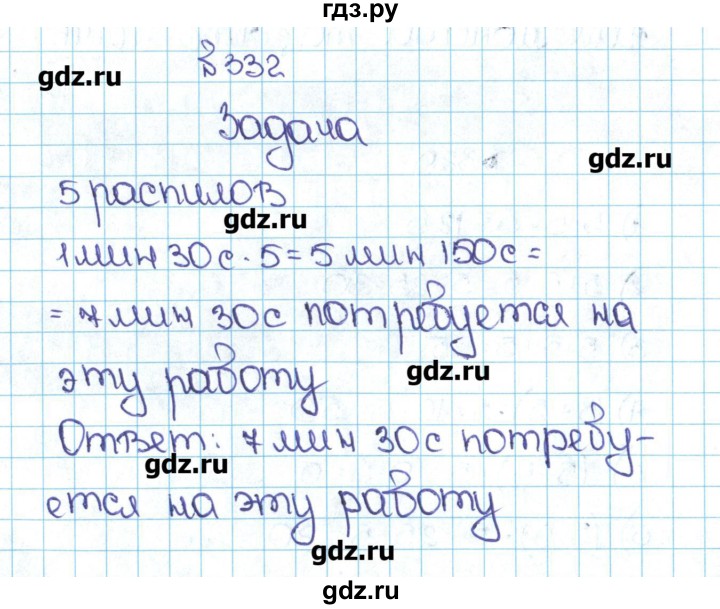 гдз.ру
№332
gdz.ru
Задача
gdz.ru
5 распилов
gdz.ru
1 мин 30с · 5 = 5 мин 150с =
= 7 мин 30с потребуется на
эту работу
gdz.ru
Ответ: 7 мин 30с потребу-
gdz.ru
ется на эту работу
gdz.ru
gdz.ru